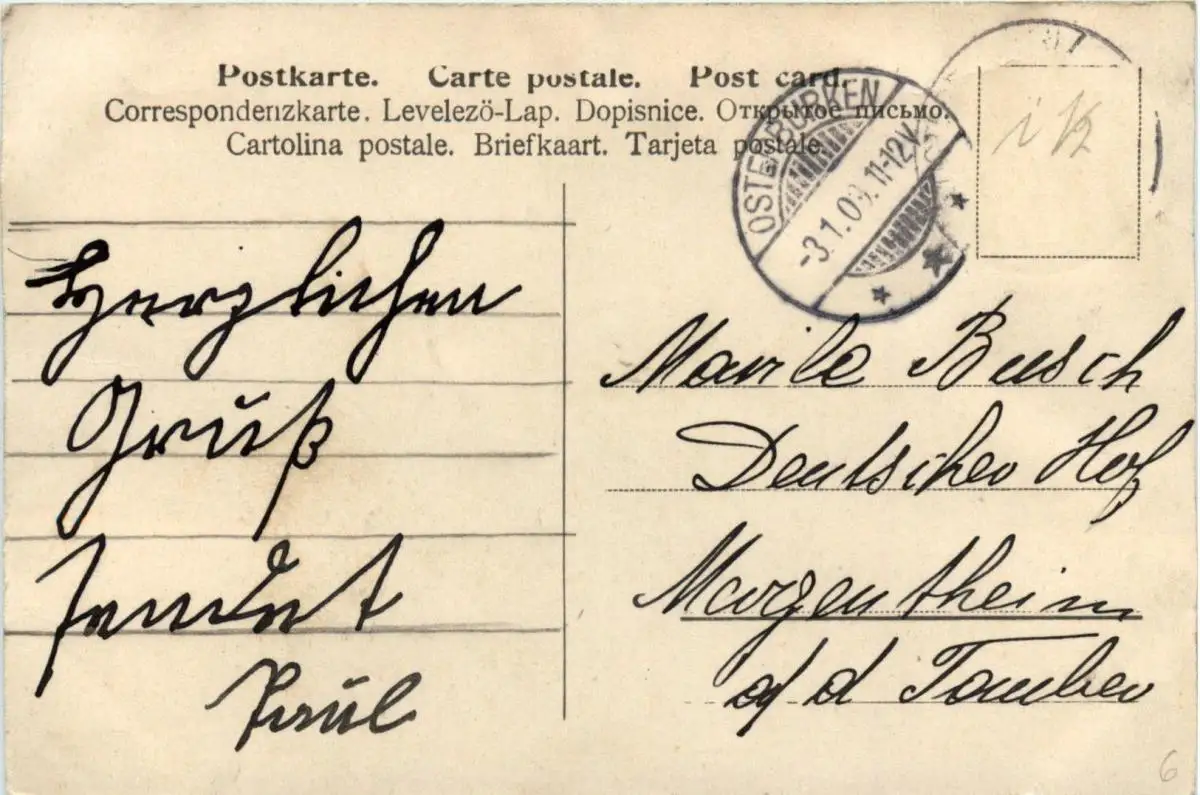 Postkarte. Carte postale. Post card.
Correspondenzkarte. Levelezö-Lap. Dopisnice. Открытое письмо.
Cartolina postale. Briefkaart. Tarjeta postale.
OSTERBURKEN
-3.1.09. 11-12V.
Herzlichen
Gruß
sendet
Paul
Marile Busch
Deutscher Hof
Mergentheim
a/d Tauber
6